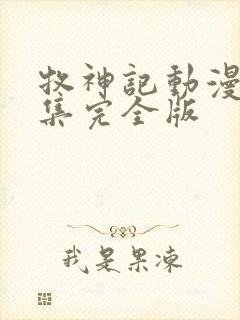 牧神記動漫
集完全版
我是果凍